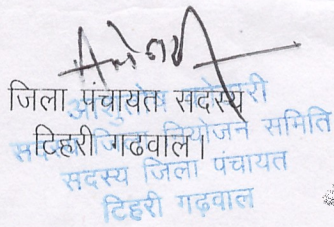 जिला पंचायत सदस्य
टिहरी गढवाल।
सदस्य जिला नियोजन समिति
सदस्य जिला पंचायत
टिहरी गढ़वाल